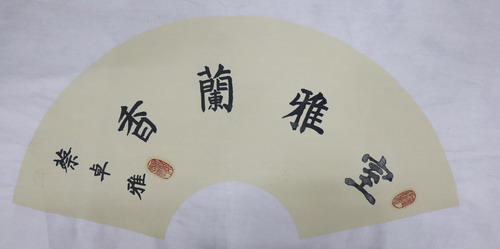 室雅蘭香
蔡卓雅